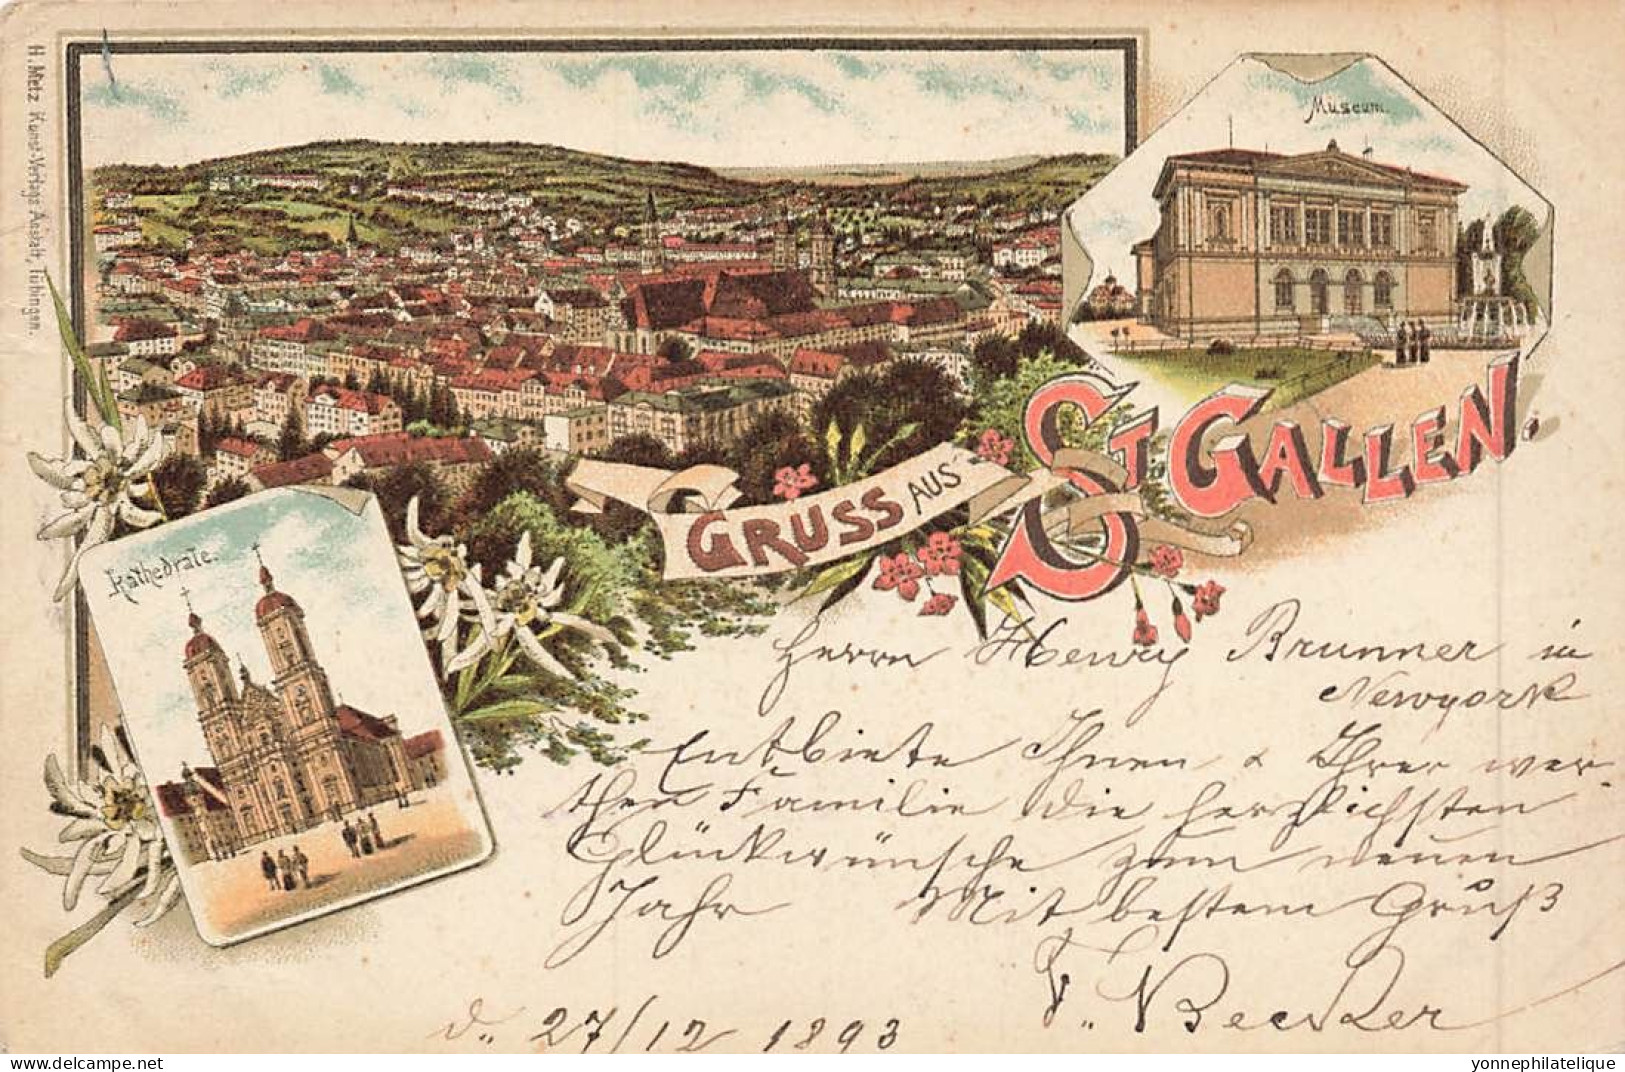 H. Metz Kunst-Verlags Anstalt, Tübingen.
Museum.
Kathedrale.
GRUSS AUS ST GALLEN.
Herrn Henry Brunner in
Newyork
Entbiete Ihnen & Ihrer wer-
then Familie die herzlichsten
Glückwünsche zum neuen
Jahr Mit bestem Gruß
Becker
d. 27/12 1893
yonnephilatelique